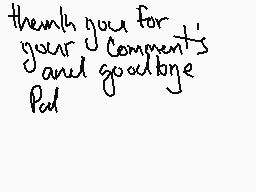 thank you for
your comment's
and goodbye
Pal